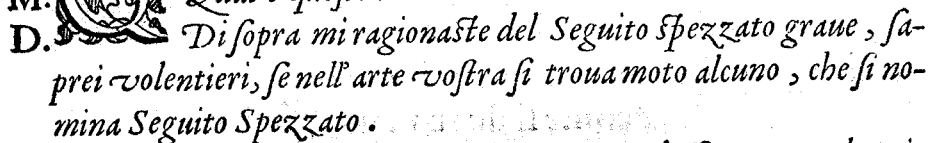 M.
D. Di ſopra mi ragionaſte del Seguito ſpezzato graue, ſa-
prei volentieri, ſe nell' arte voſtra ſi troua moto alcuno, che ſi no-
mina Seguito Spezzato.